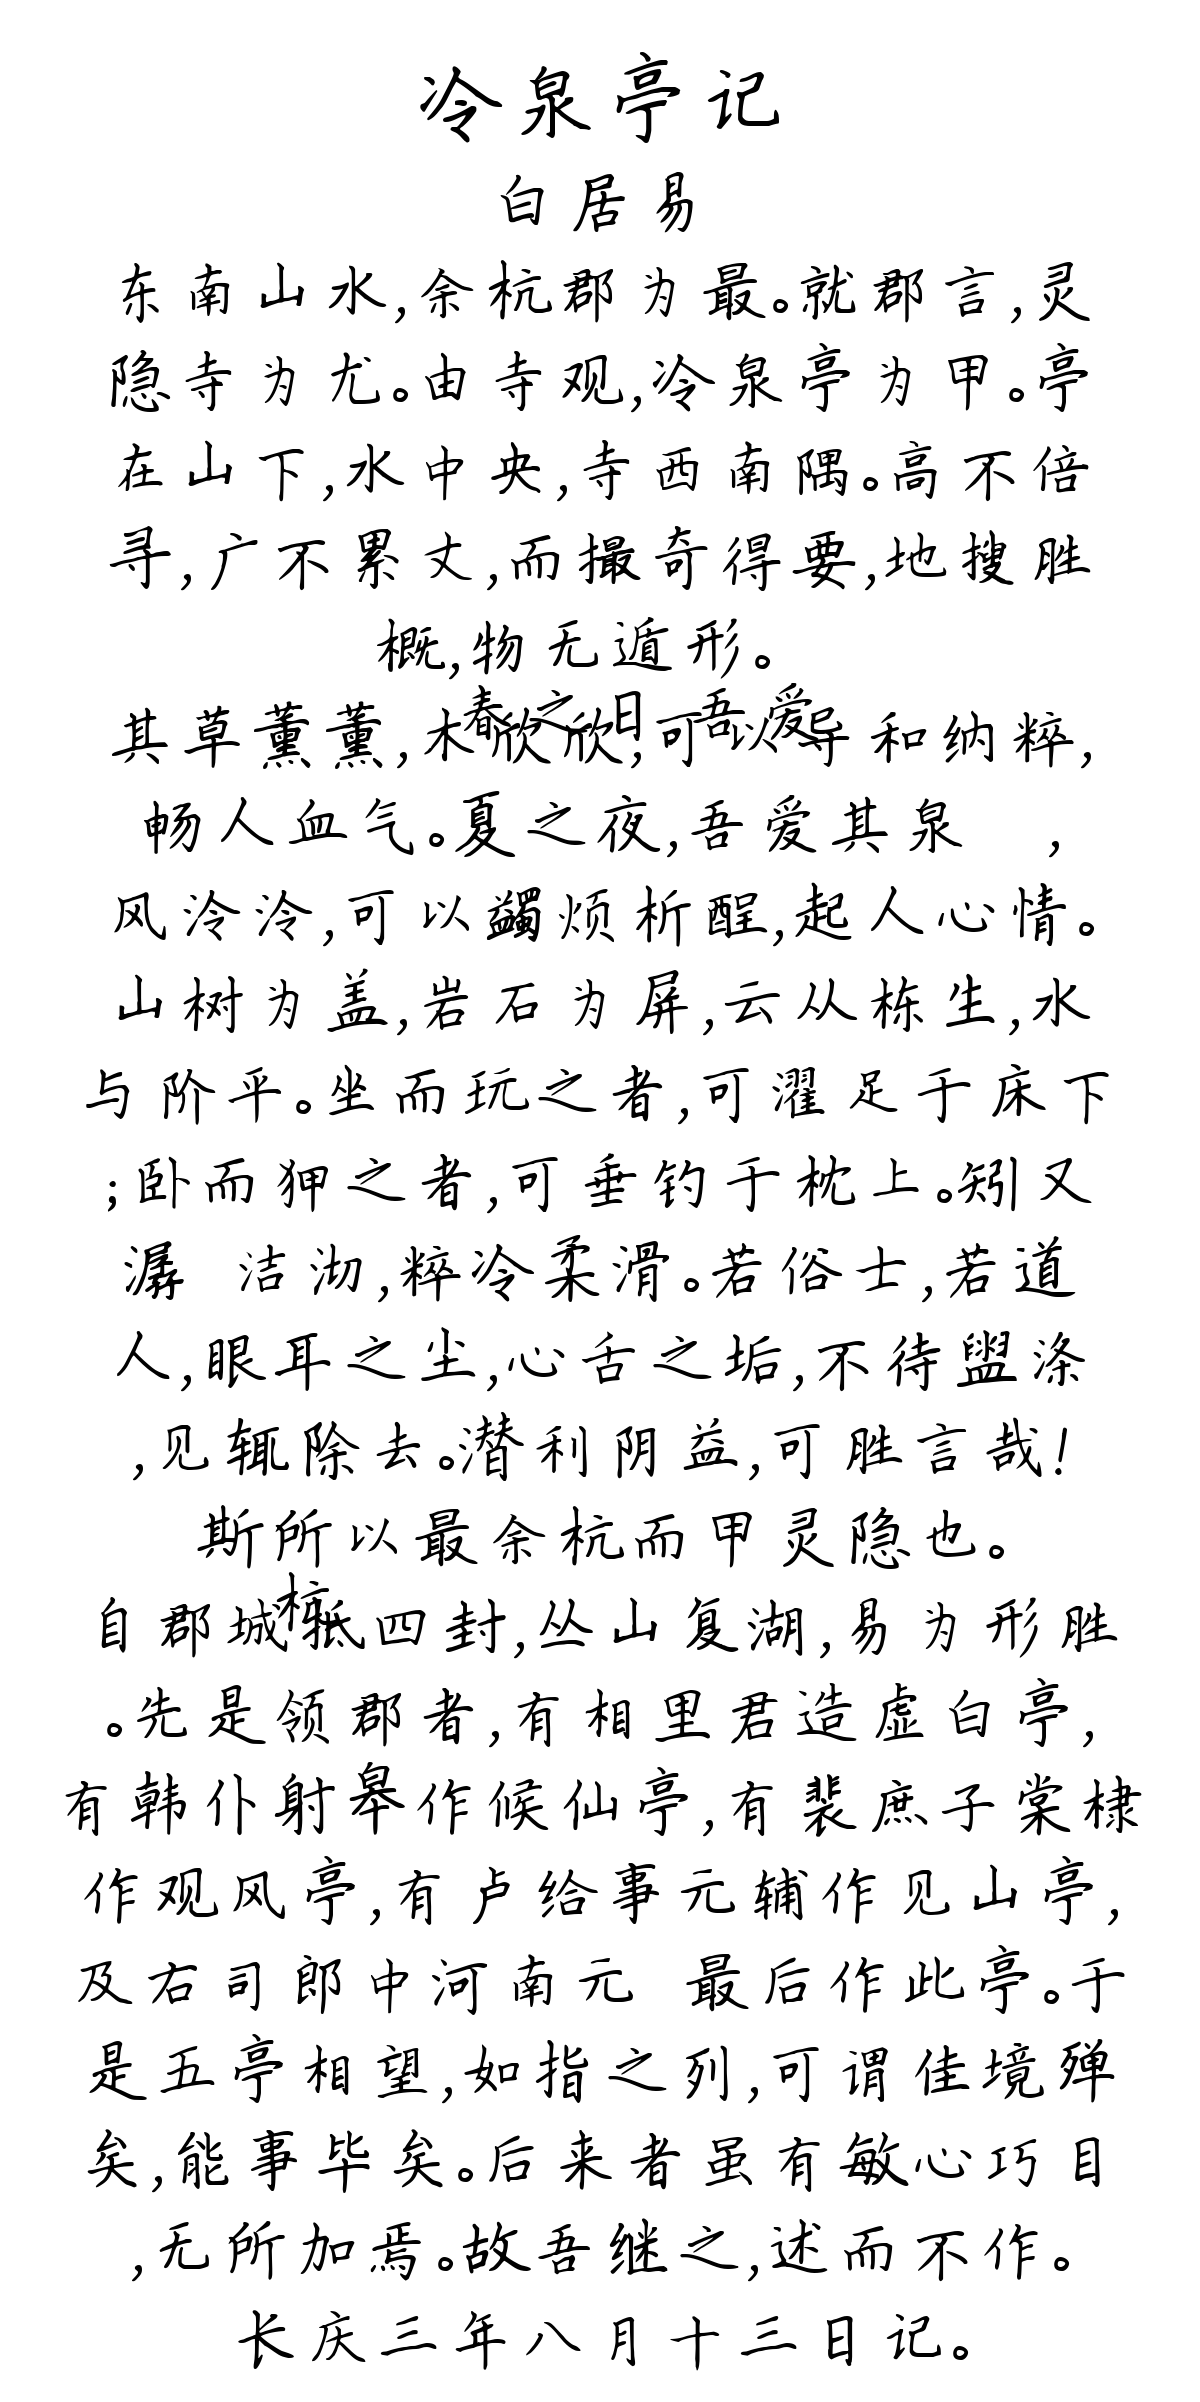 冷泉亭记
白居易
东南山水,余杭郡为最。就郡言,灵
隐寺为尤。由寺观,冷泉亭为甲。亭
在山下,水中央,寺西南隅。高不倍
寻,广不累丈,而撮奇得要,地搜胜
概,物无遁形。
春之日吾爱
其草薰薰,木欣欣,可以导和纳粹,
畅人血气。夏之夜,吾爱其泉 ,
风泠泠,可以蠲烦析酲,起人心情。
山树为盖,岩石为屏,云从栋生,水
与阶平。坐而玩之者,可濯足于床下
;卧而狎之者,可垂钓于枕上。矧又
潺 洁沏,粹冷柔滑。若俗士,若道
人,眼耳之尘,心舌之垢,不待盥涤
,见辄除去。潜利阴益,可胜言哉!
斯所以最余杭而甲灵隐也。
杭
自郡城抵四封,丛山复湖,易为形胜
。先是领郡者,有相里君造虚白亭,
有韩仆射皋作候仙亭,有裴庶子棠棣
作观风亭,有卢给事元辅作见山亭,
及右司郎中河南元 最后作此亭。于
是五亭相望,如指之列,可谓佳境殚
矣,能事毕矣。后来者虽有敏心巧目
,无所加焉。故吾继之,述而不作。
长庆三年八月十三日记。